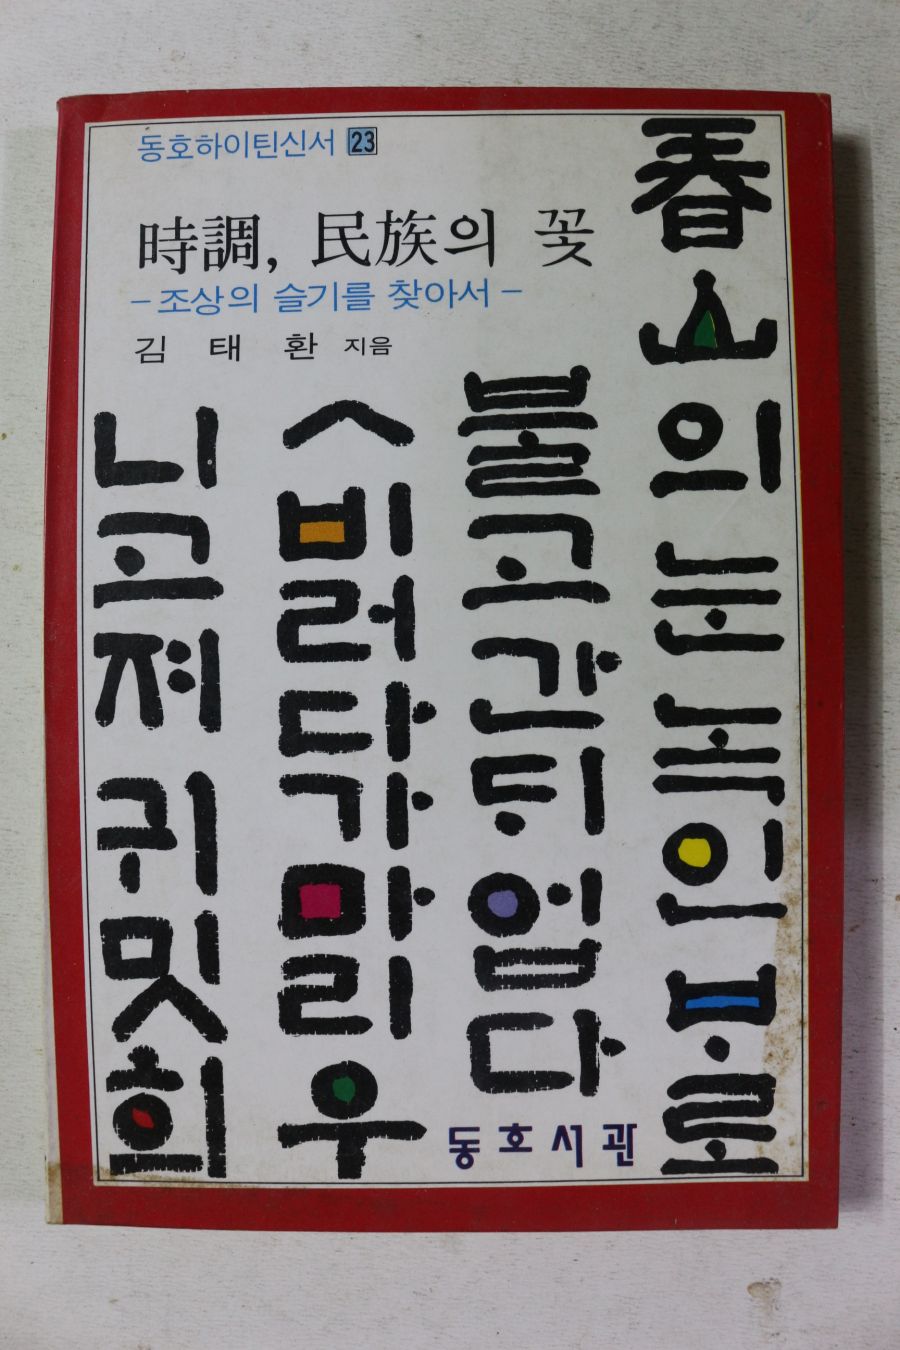 동호하이틴신서 23
時調, 民族의 꽃
-조상의 슬기를 찾아서-
김 태 환 지음
春山의눈녹인ᄇᆞ로
불고간ᄃᆡ업다
ㅅ비러다가마리우
니고져귀밋희
동호서관